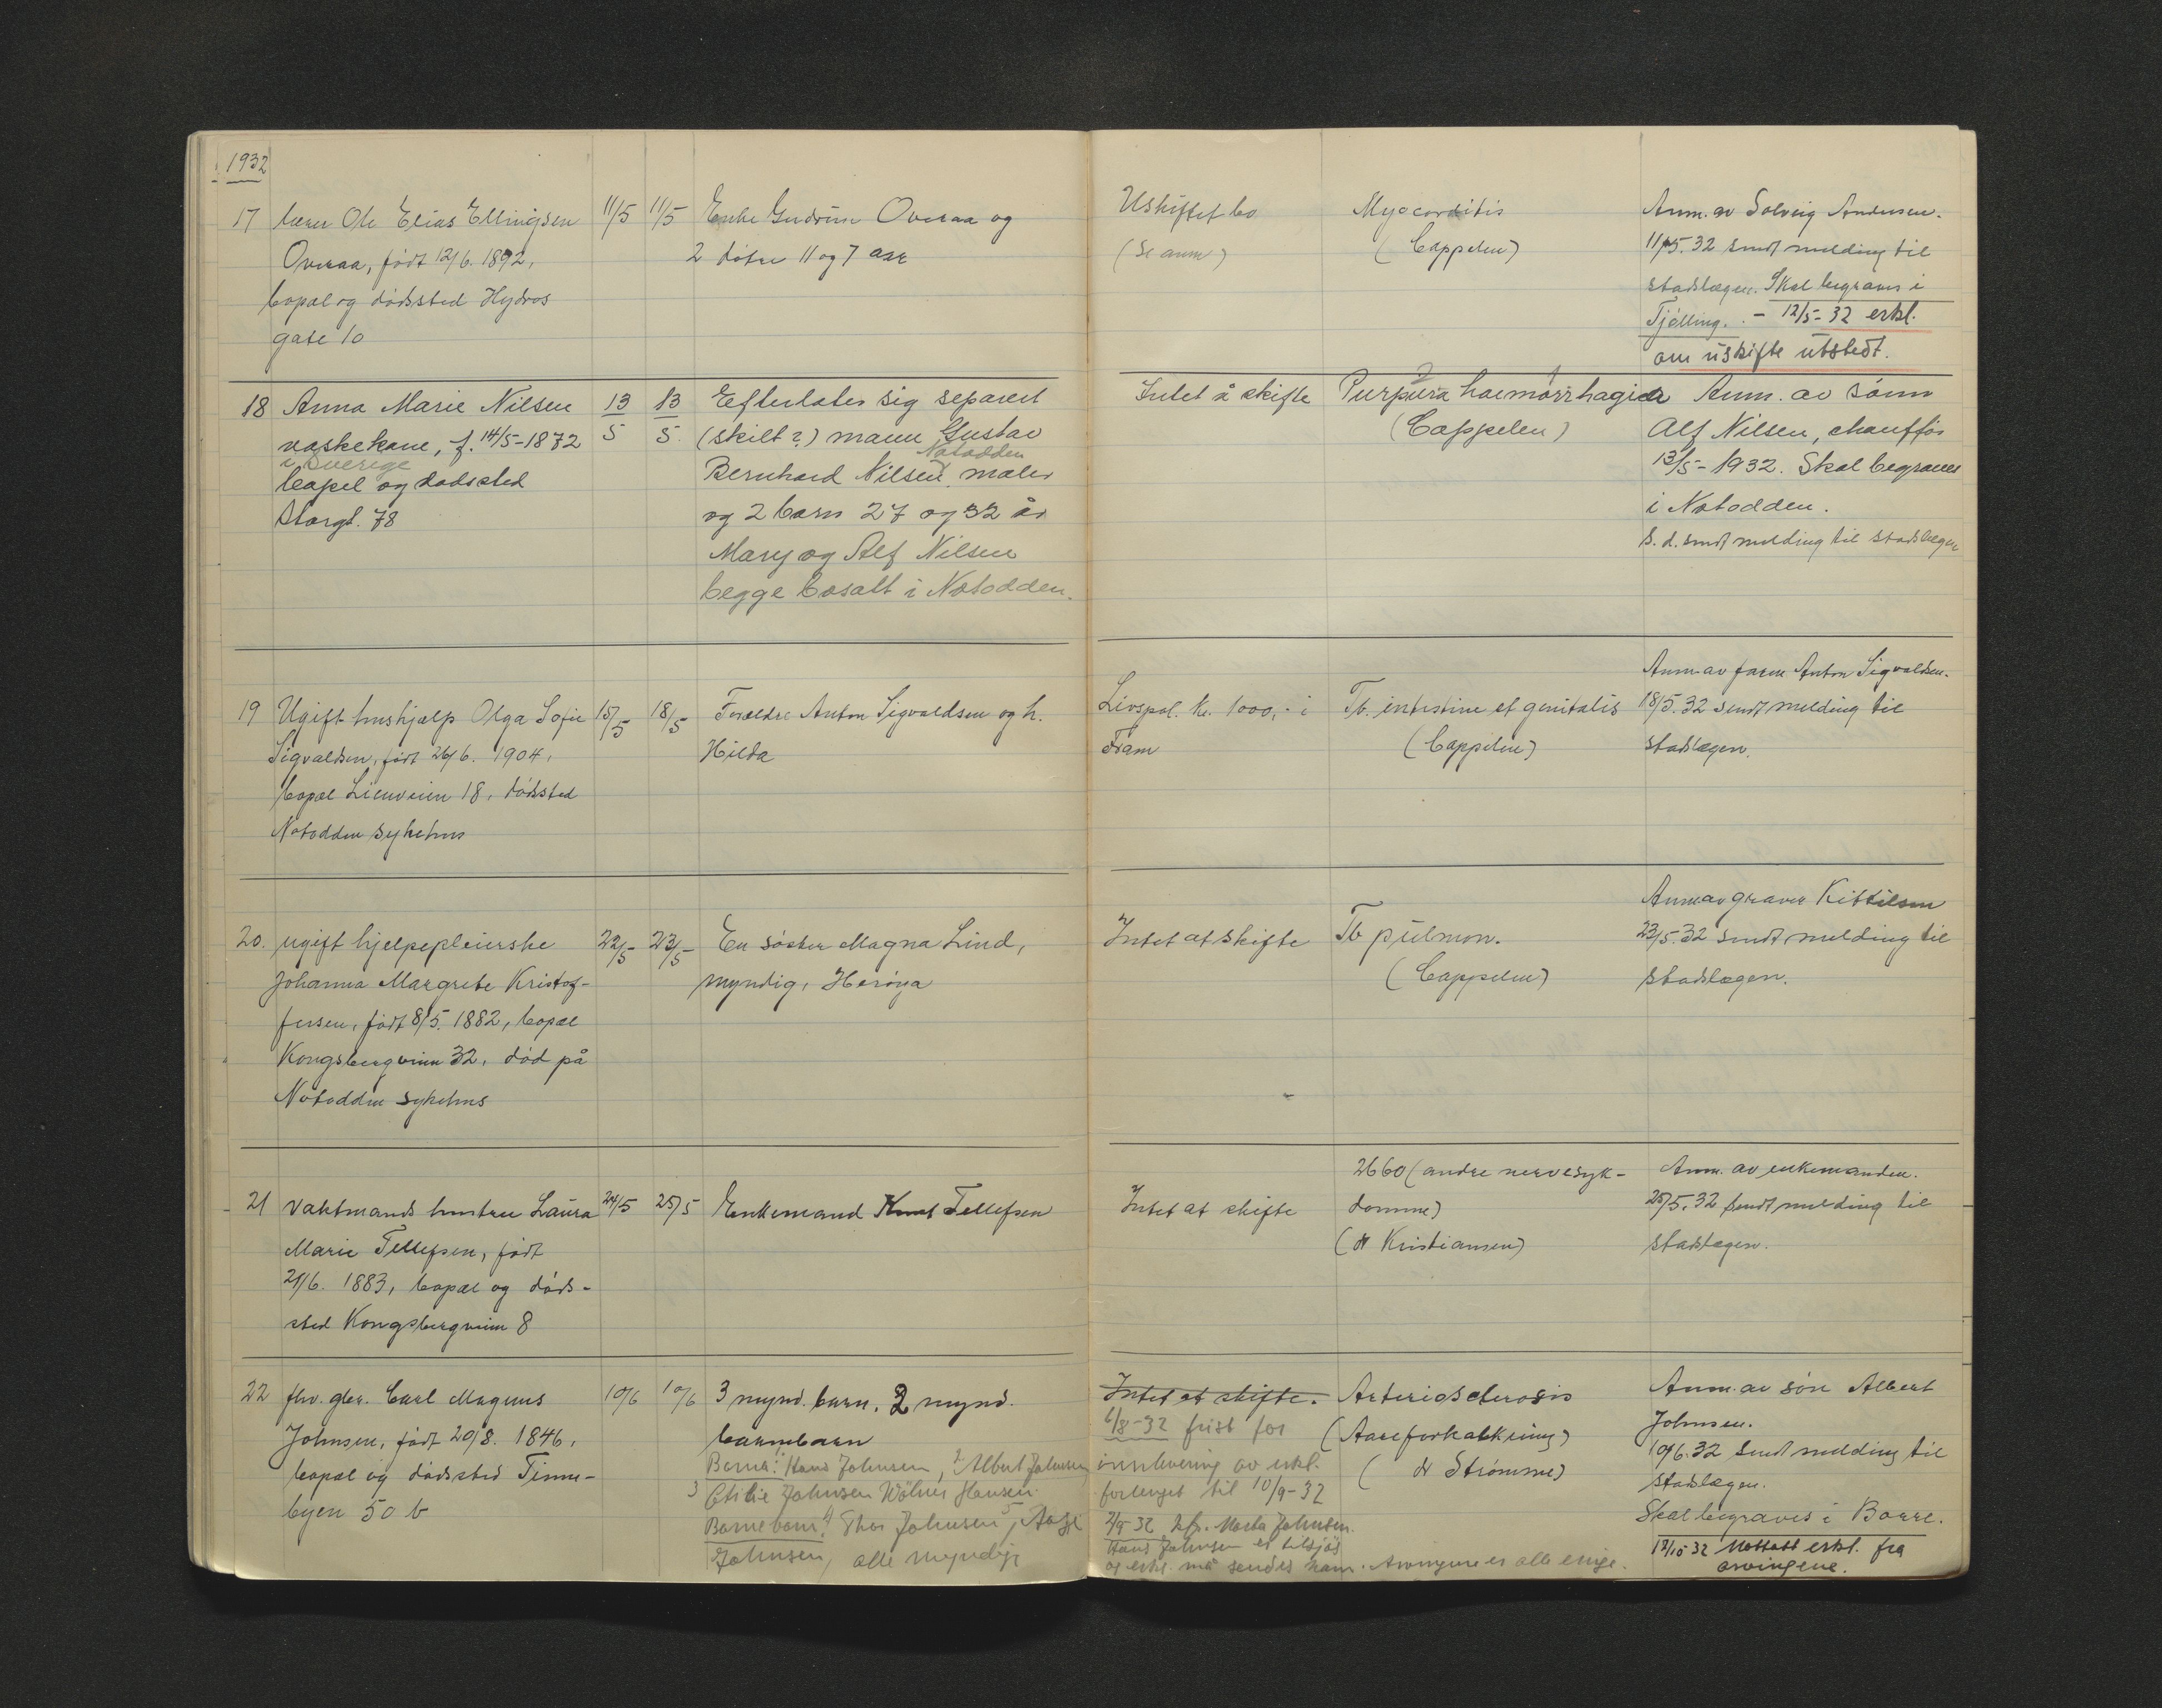 1932
17 lærer Ole Elias Ellingsen 11/5 11/5 Enke Gudrun Overaa og Uskiftet bo Myocarditis Anm. av Solveig Andersen.
Overaa, født 12/6. 1892, 2 døtre 11 og 7 aar (Se anm) (Cappelen) 11/5.32 sendt melding til
bopæl og dødssted Hydros stadslægen. Skal begraves i
gate 10 Tjølling. - 12/5-32 erkl.
om uskifte utstedt.
18 Anna Marie Nilsen 13/5 13/5. Efterlater sig separert Intet å skifte Purpura haemorrhagica Anm. av sønn
vaskekone, f. 14/5-1872 (skilt?) mann Gustav (Cappelen) Alf Nilsen, chauffør
i Sverige Notodden
bopel og dødssted Bernhard Nilsen, maler 13/5-1932. Skal begraves
Storgt. 78 og 2 barn 27 og 32 år i Notodden.
Mary og Alf Nilsen S.d. sendt melding til stadslægen
begge bosatt i Notodden.
Anm. av faren Anton Sigvaldsen.
19 Ugift hushjælp Olga Sofie 15/5 18/5 Forældre Anton Sigvaldsen og h. Livspol. kr. 1000,- i Tb. intestine et genitalis 18/5.32 sendt melding til
Sigvaldsen, født 26/6. 1904, Hilda Fram (Cappelen) stadslægen.
bopæl Lienveien 18, dødssted
Notodden sykehus
Anm av graver Kittilsen
20. ugift hjelpepleierske 22/5 23/5 En søster Magna Lind, Intet at skifte Tb pulmon. 23/5.32 sendt melding til
Johanna Margrete Kristof- myndig, Herøya (Cappelen) stadslægen.
fersen, født 8/5. 1882, bopæl
Kongsbergveien 32, død på
Notodden sykehus
2660 (andre nervesyk- Anm. av enkemanden.
21 Vaktmands hustru Laura 24/5 25/5 Enkemand Knut Tellefsen Intet at skifte domme) 25/5.32 sendt melding til
Marie Tellefsen, født (dr Kristiansen) stadslægen.
21/6. 1883, bopæl og døds-
sted Kongsbergveien 8
22 fhv. gbr. Carl Magnus 10/6 10/6 3 mynd. barn. 2 mynd. Intet at skifte. Arteriosclerosis Anm. av søn Albert
Johnsen, født 20/8. 1846, barnebarn 6/8-32 frist for (Aareforkalkning) Johnsen.
bopæl og dødssted Tinne- Barna: 1 Hans Johnsen, 2 Albert Johnsen innlevering av erkl. (dr Strømme) 10/6.32 sendt melding til
byen 50 b 3 Otilie Johnsen Wölner Hansen forlenget til 10/9-32 stadslægen.
Barnebarn: 4 Thor Johnsen, 5 Aage 2/9 32 Marta Johnsen. Skal begraves i Borre.
Johnsen, alle myndige Hans Johnsen er tilsjøs 12/10 32 Mottatt erkl. fra
og erkl. må sendes ham. Arvingene er alle enige. arvingene.